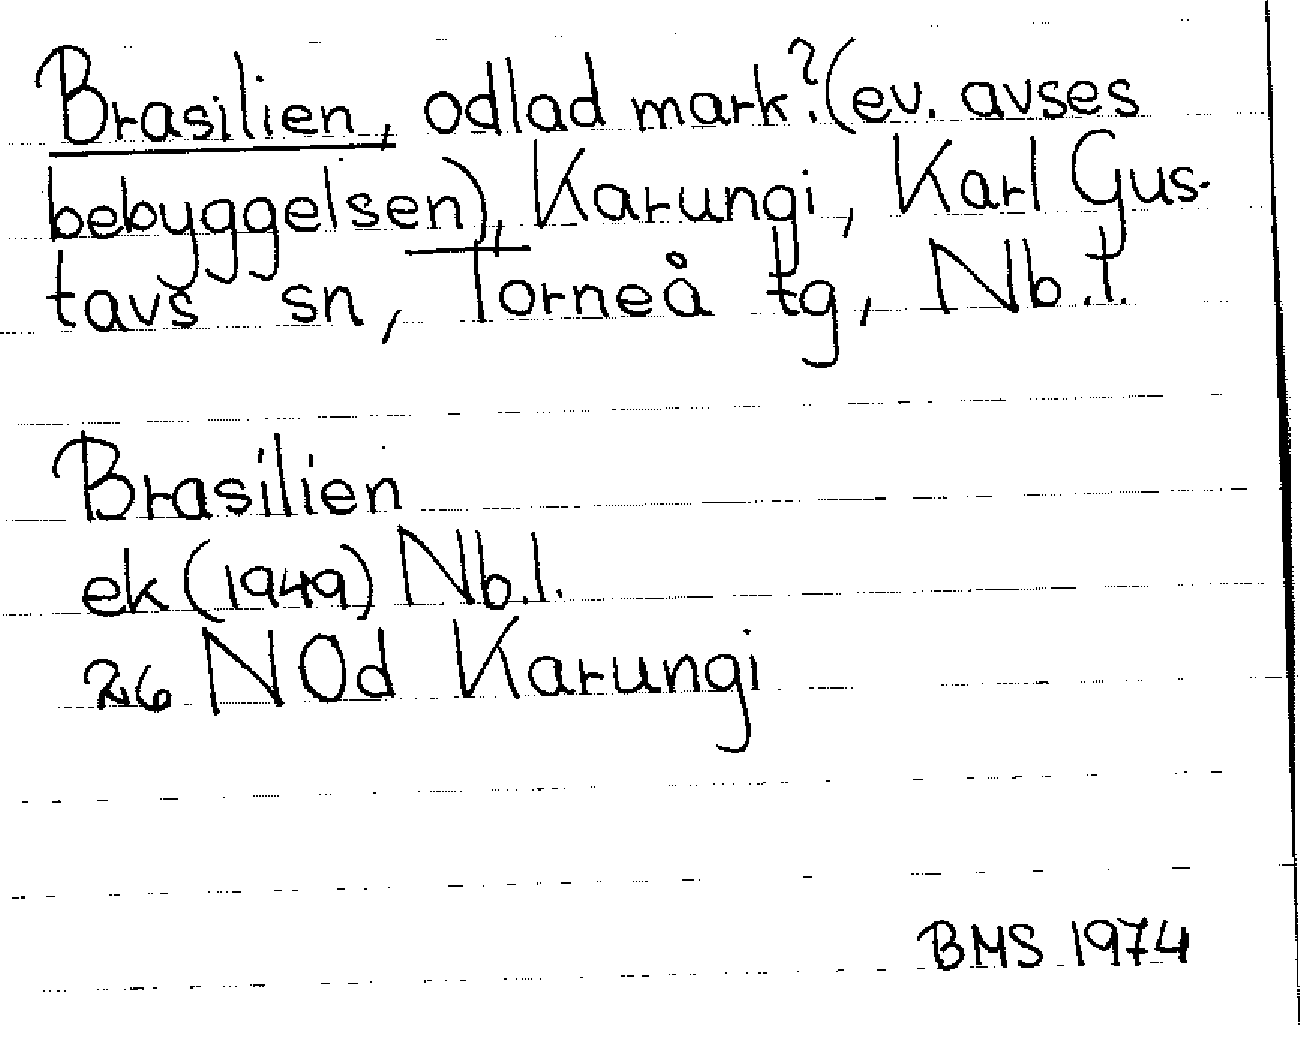 Brasilien, odlad mark? (ev. avses
bebyggelsen), Karungi, Karl Gus-
tavs sn, Torneå tg, Nb.l.
Brasilien
ek (1949) Nb.l.
26 NOd Karungi
BMS 1974